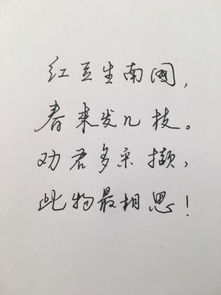 红豆生南国,
春来发几枝。
劝君多采撷,
此物最相思!